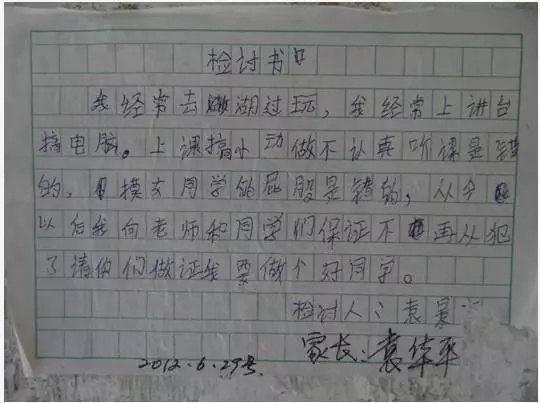 检讨书
我经常去湖过玩，我经常上讲台
搞电脑。上课搞小动做不认真听课是错
的，摸女同学的屁股是错的，从今
以后我向老师和同学们保证不再从犯
了请你们做证我要做个好同学。
检讨人：袁景
家长：袁华平
2012.6.29号